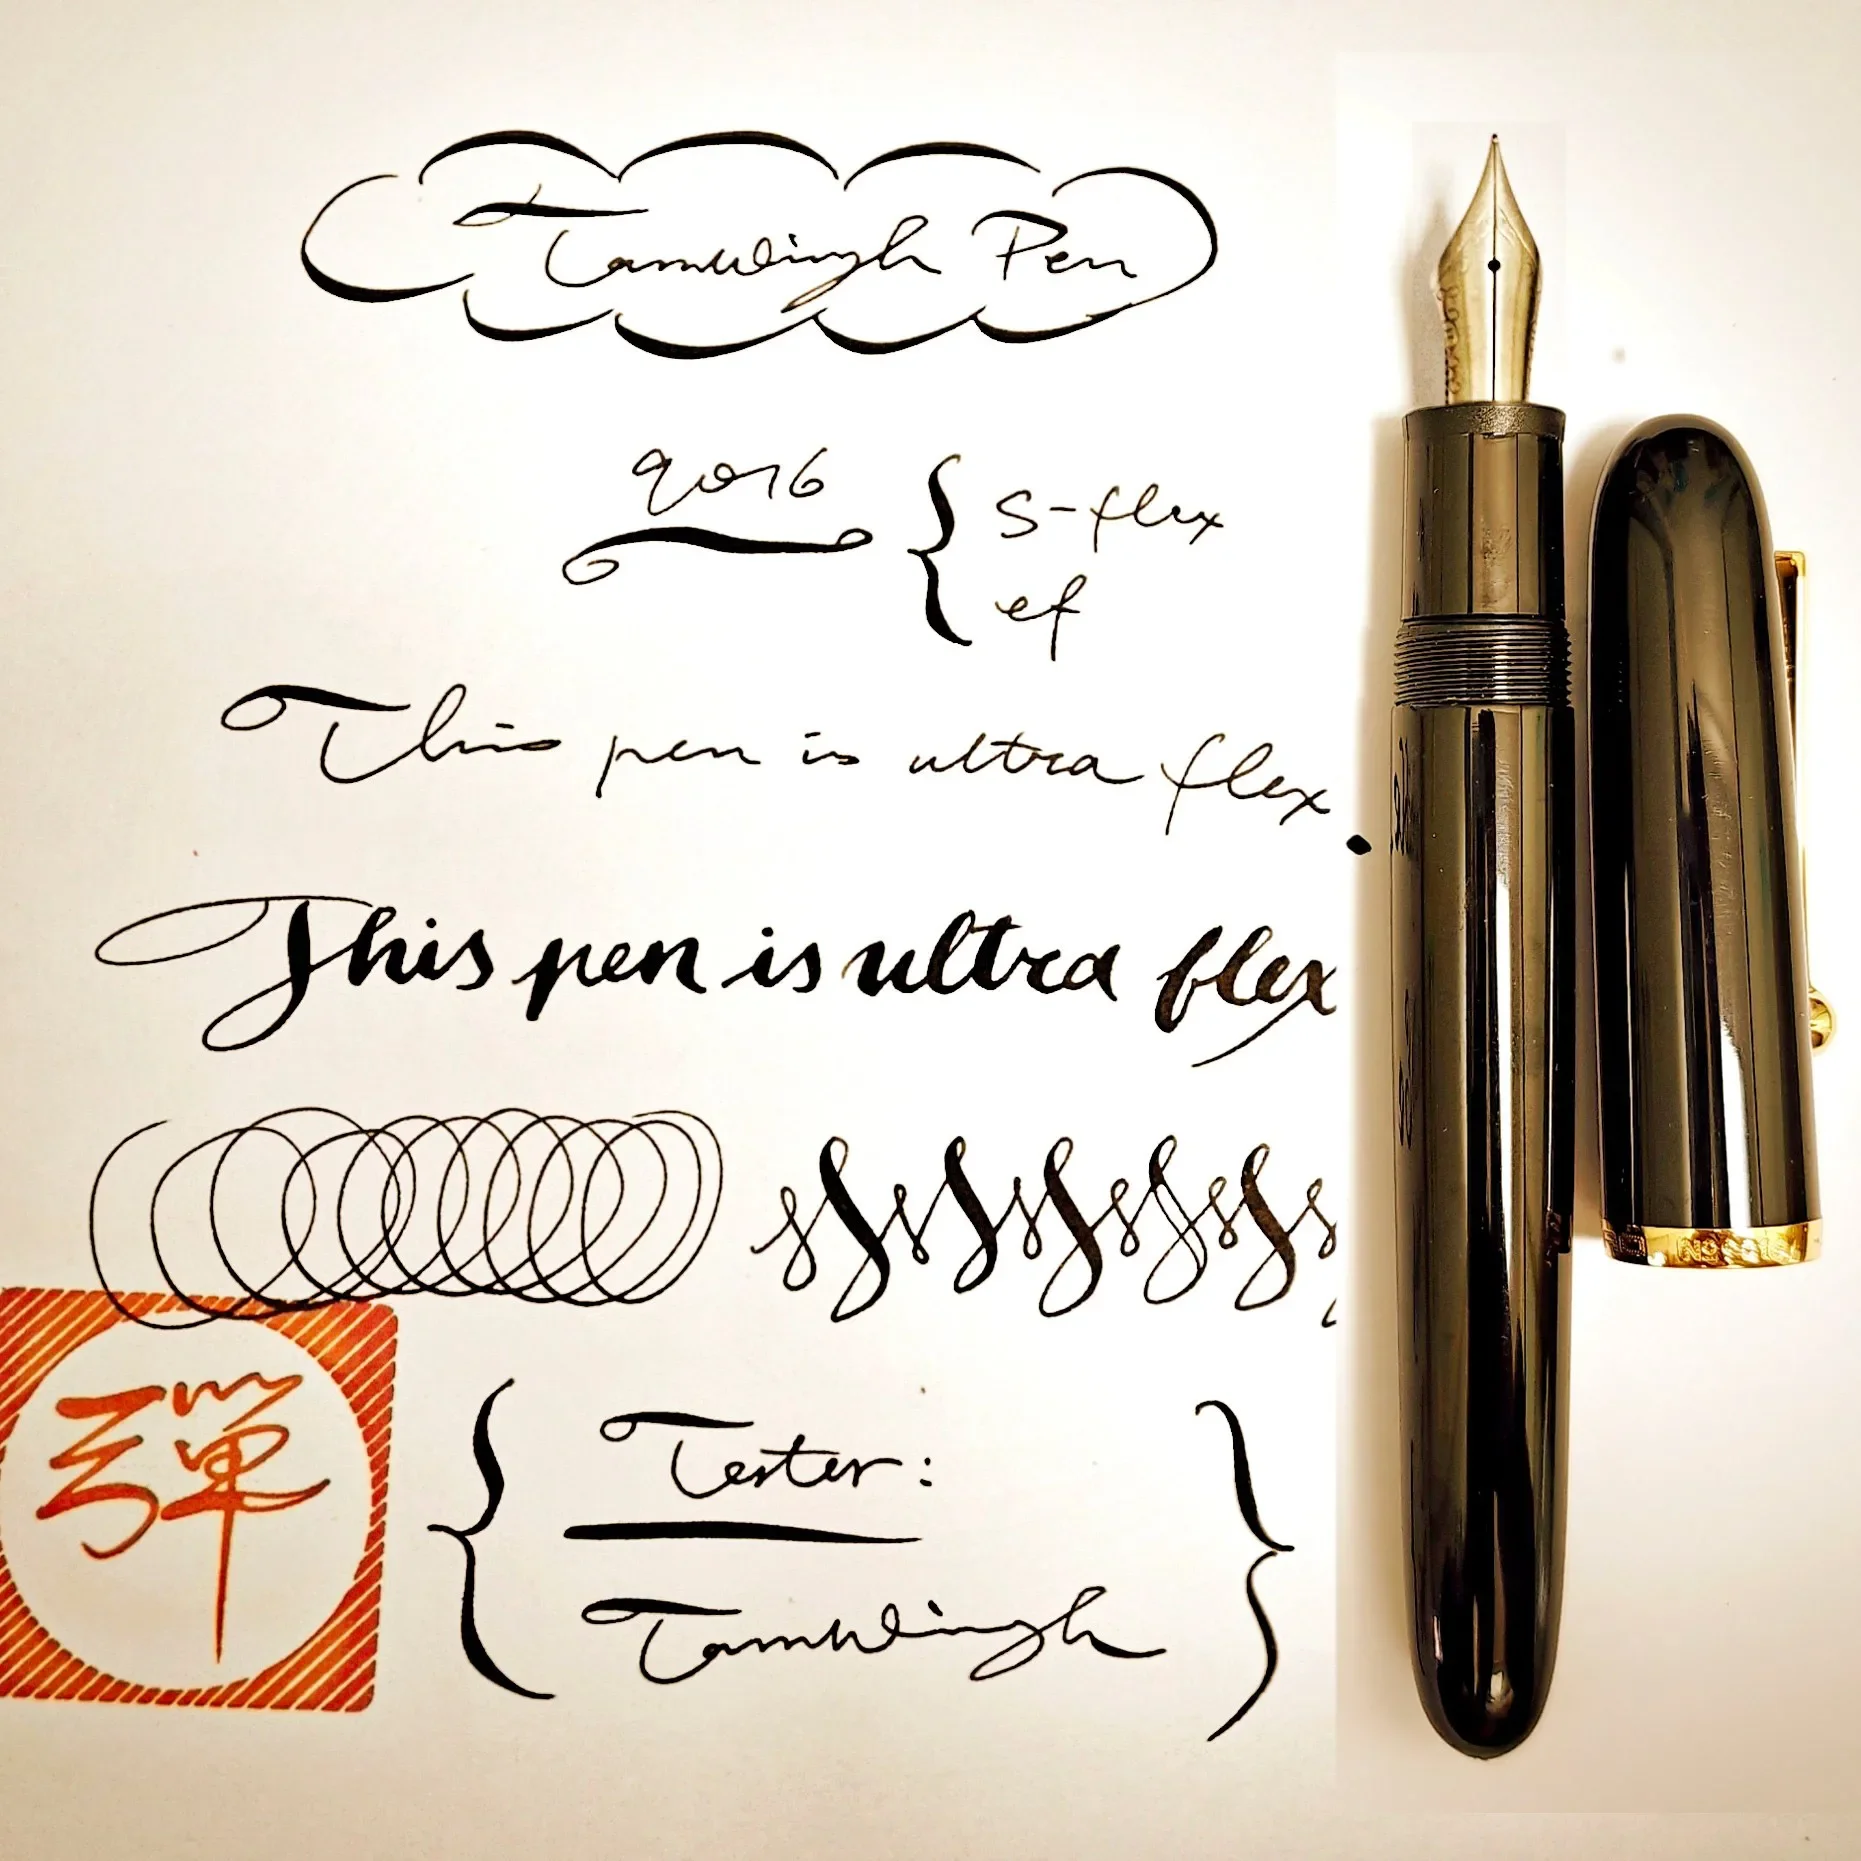 TamWingh Pen
9016 { S-flex
ef
This pen is ultra flex.
This pen is ultra flex
彈
{ Tester: }
TamWingh